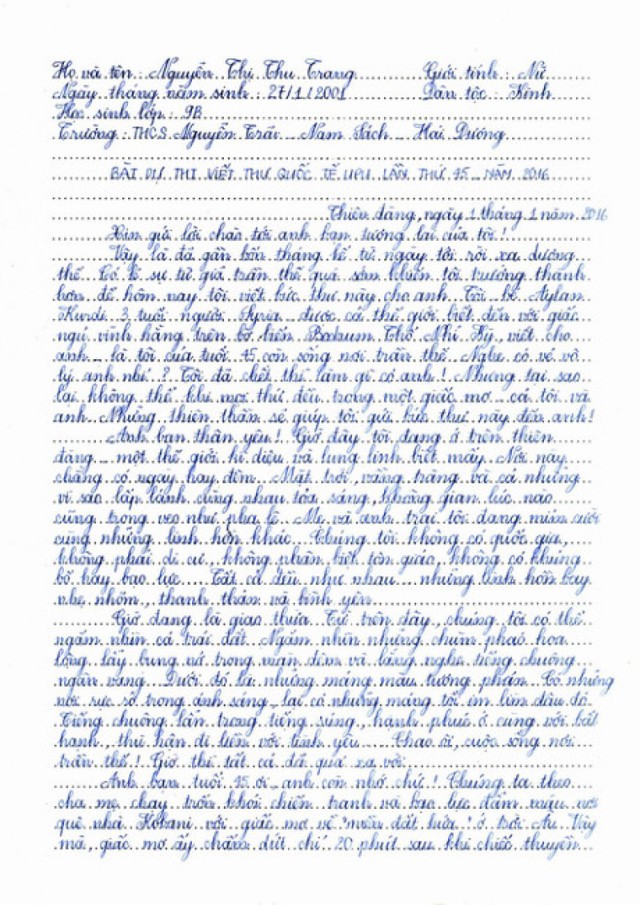 Họ và tên: Nguyễn Thị Thu Trang Giới tính: Nữ
Ngày tháng năm sinh: 27/1/2001 Dân tộc: Kinh
Học sinh lớp: 9B
Trường: THCS Nguyễn Trãi - Nam Sách - Hải Dương
BÀI DỰ THI VIẾT THƯ QUỐC TẾ UPU LẦN THỨ 45 - NĂM 2016
Thiên đàng, ngày 1 tháng 1 năm 2016
Xin gửi lời chào tới anh bạn tương lai của tôi!
Vậy là đã gần bốn tháng kể từ ngày tôi rời xa dương
thế. Có lẽ sự từ giã trần thế quá sớm khiến tôi trưởng thành
hơn để hôm nay tôi viết bức thư này cho anh. Tôi kể Aylan
Kurdi 3 tuổi người Syria được cả thế giới biết đến với giấc
ngủ vĩnh hằng trên bờ biển Bodrum Thổ Nhĩ Kỳ, viết cho
anh - là tôi của tuổi 45 còn sống nơi trần thế. Nghe có vẻ vô
lý anh nhỉ? Tôi đã chết thì làm gì có anh! Nhưng tại sao
lại không thể khi mọi thứ đều trong một giấc mơ - cả tôi và
anh. Những thiên thần sẽ giúp tôi gửi bức thư này đến anh!
Anh bạn thân yêu! Giờ đây tôi đang ở trên thiên
đàng - một thế giới kì diệu và lung linh biết mấy. Nơi này
chẳng có ngày hay đêm. Mặt trời, vầng trăng và cả những
vì sao lấp lánh cùng nhau tỏa sáng, không gian lúc nào
cũng trong veo như pha lê. Mẹ và anh trai tôi đang mỉm cười
cùng những linh hồn khác. Chúng tôi không có quốc gia,
không phải di cư, không phân biệt tôn giáo, không có khủng
bố hay bạo lực. Tất cả đều như nhau - những linh hồn bay
nhẹ nhõm, thanh thản và bình yên.
Giờ đang là giao thừa. Từ trên đây, chúng tôi có thể
ngắm nhìn cả trái đất. Ngắm nhìn những chùm pháo hoa
lộng lẫy bung nở trong màn đêm và lắng nghe tiếng chuông
ngân vang. Dưới đó là những mảng màu tương phản. Có những
nơi rực rỡ trong ánh sáng, lại có những mảng tối im lìm đâu đó.
Tiếng chuông lẫn trong tiếng súng, hạnh phúc ở cùng với bất
hạnh, thù hận đi liền với tình yêu... Chao ôi, cuộc sống nơi
trần thế! Giờ thì tất cả đã quá xa vời.
Anh bạn tuổi 45 ơi, anh còn nhớ chứ! Chúng ta theo
cha mẹ chạy trốn khỏi chiến tranh và bạo lực đẫm máu nơi
quê nhà Kobani với giấc mơ về "miền đất hứa" ở trời Âu. Vậy
mà, giấc mơ ấy chấm dứt chỉ 20 phút sau khi chiếc thuyền